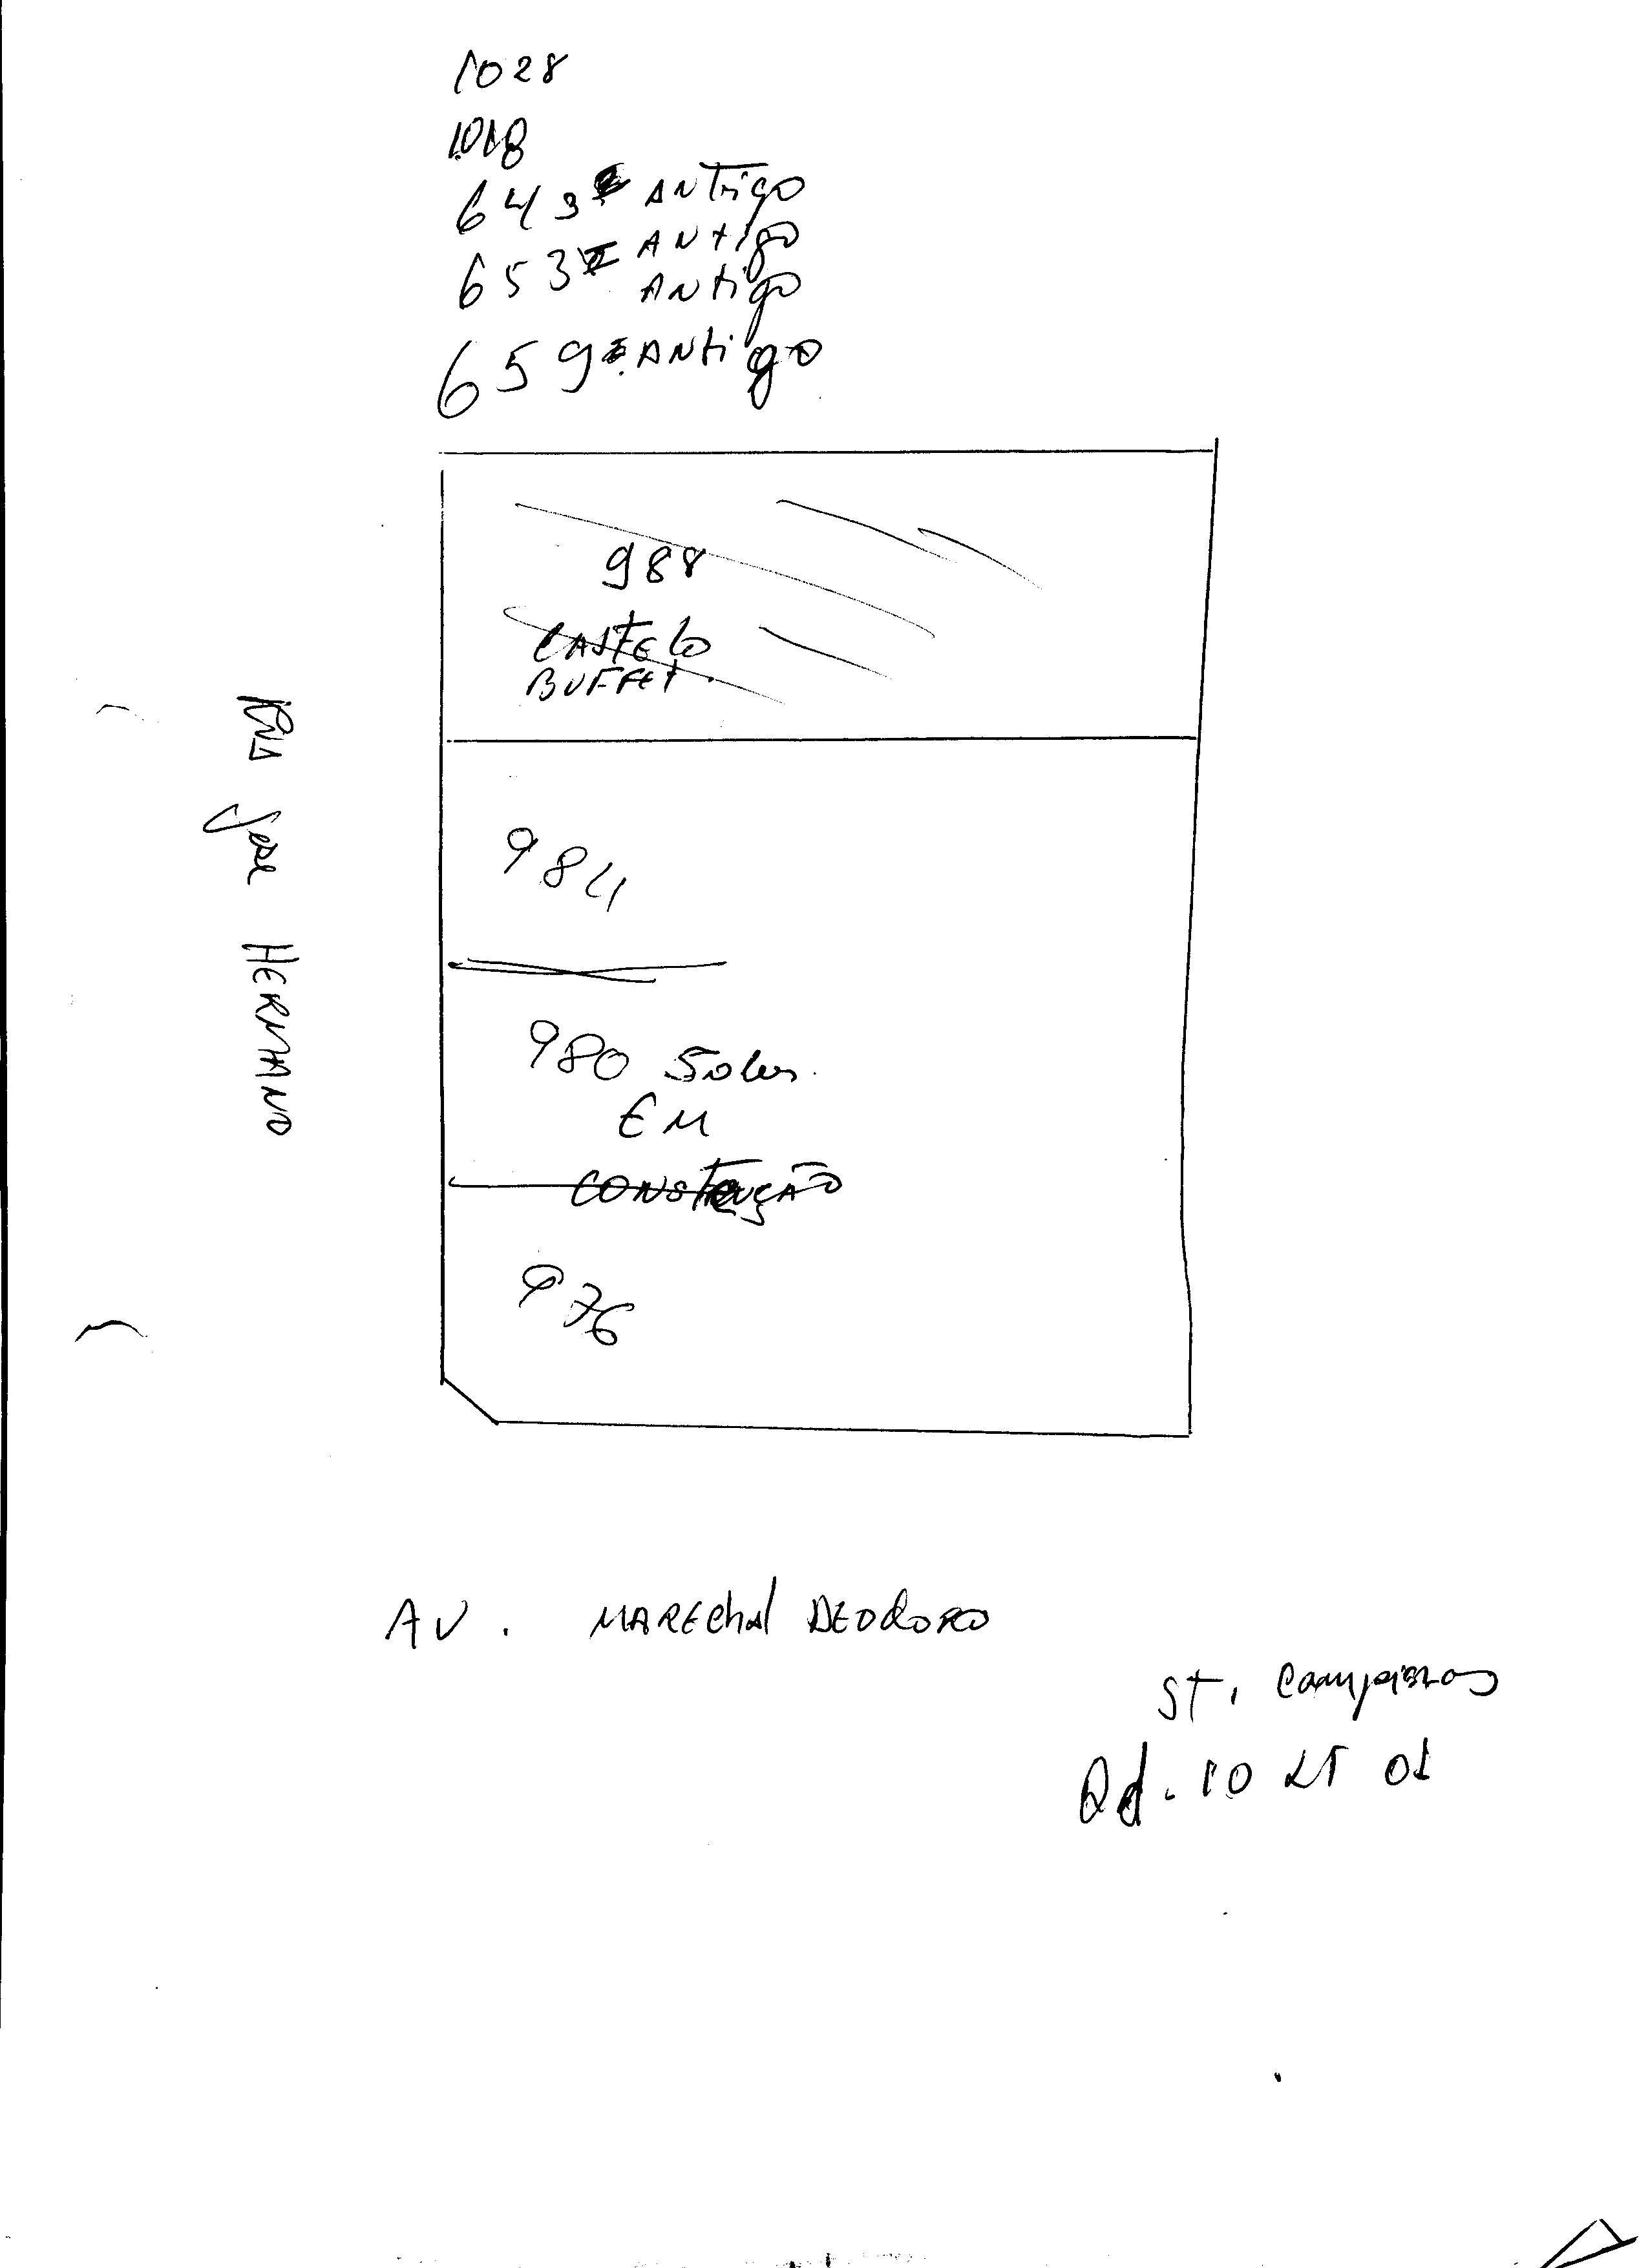 1028
1.018
643 ANTIGO
653 ANTIGO
ANTIGO
659 ANTIGO
988
CASTELO
BUFFET.
984
980
EM
CONSTRUÇÃO
976
RUA José HERMANO
AV. MARECHAL DEODORO
ST. Campinas
Qd. 10 LT 01